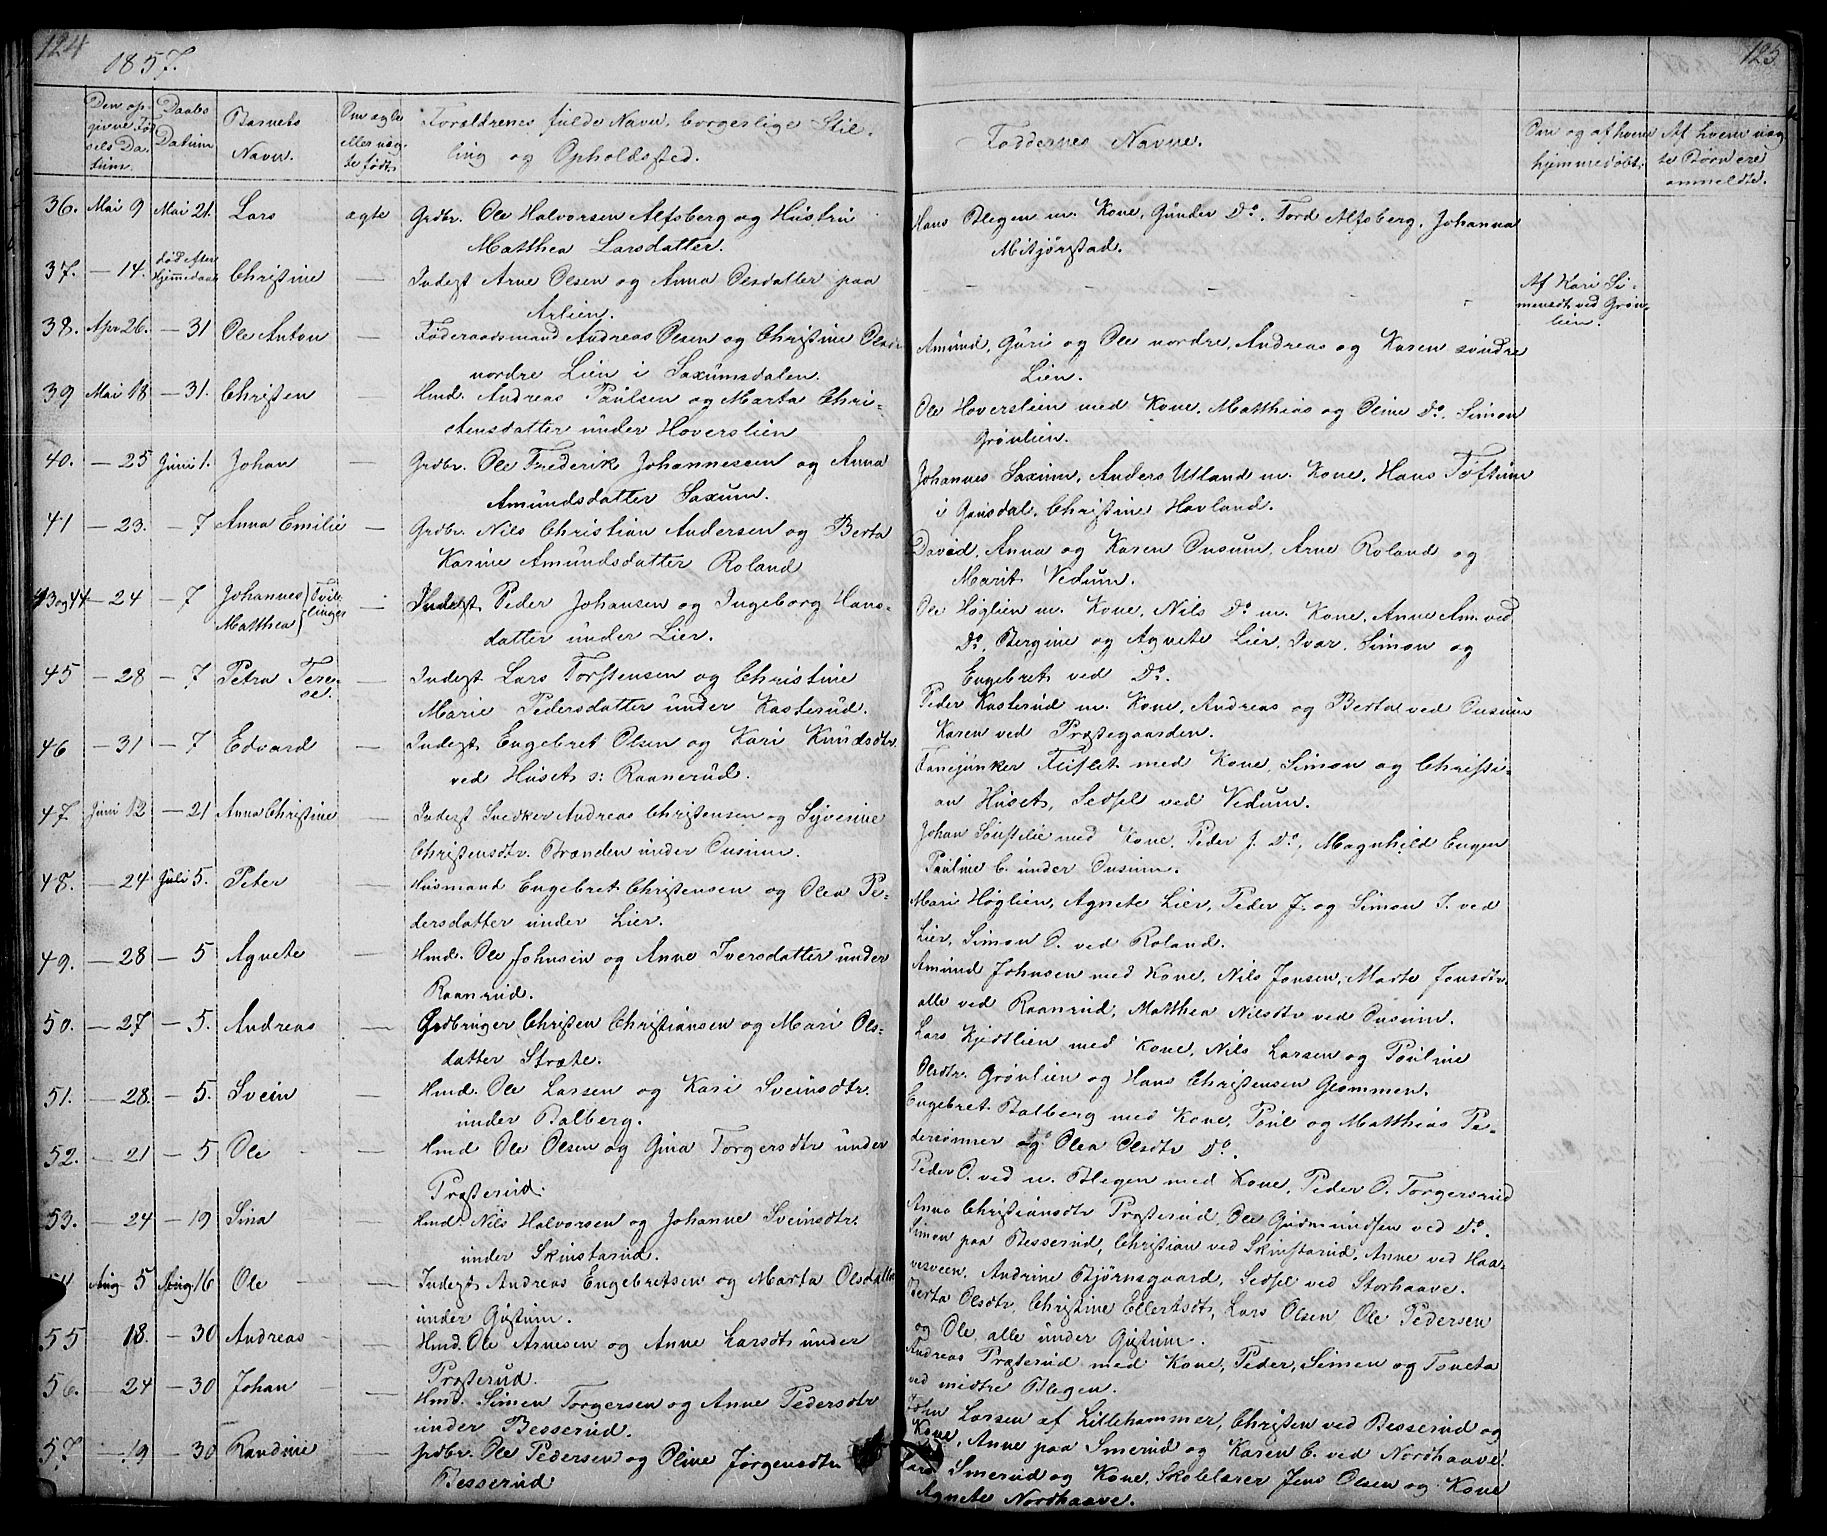 124
1857.
Den op-
givne Fød
sels Da-
tum.
Daabs
Datum
Barnets
Navn.
Om ægte
eller uæg-
te født.
Forældrenes fulde Navn, borgerlige Stil-
ling og Opholdssted.
36. Mai 9 Mai 21. Lars ægte Grdbr. Ole Halvorsen Alfsberg og Hustru
Matthea Larsdatter.
37. — 14. død efter Hjemmedaab Christine — Inderst Arne Olsen og Anna Olsdatter paa
Arlien.
38. Apr 26. — 31 Ole Anton — Føderaadsmand Andreas Olsen og Christine Olsdtr
nordre Lien i Saxumsdalen.
39 Mai 18 — 31. Christen — Hmd. Andreas Paulsen og Marta Chri-
stensdatter under Hoverslien
40. — 25 Juni 1. Johan — Grdbr. Ole Frederik Johannessen og Anna
Amundsdatter Saxum.
41 — 23. — 7 Anna Emilie — Grdbr. Nils Christian Andersen og Berta
Karine Amundsdatter Roland
43 og 44 — 24 — 7 Johannes Matthea } Tvillinger — Inderst Peder Johansen og Ingeborg Hans-
datter under Lier.
45 — 28 — 7 Petra Tere-
se. — Inderst Lars Torstensen og Christine
Marie Pedersdatter under Kasterud.
46 — 31 — 7 Edvard — Inderst Engebret Olsen og Kari Knudsdtr.
ved Huset s: Raanerud.
47 Juni 12 — 21 Anna Christine — Inderst Snedker Andreas Christensen og Syverine
Christensdtr. Brænden under Ousum.
48. — 24 Juli 5. Peter — Husmand Engebret Christensen og Olea Pe-
dersdatter under Lier.
49. — 28 — 5 Agnete — Hmd. Ole Johnsen og Anne Iversdatter under
Raanrud.
50. — 27 — 5. Andreas — Grdbruger Christen Christiansen og Mari Ols-
datter Stræte.
51. — 28. — 5. Svein — Hmd. Ole Larsen og Kari Sveinsdtr.
under Balberg.
52. — 21 — 5 Ole — Hmd Ole Olsen og Gina Torgersdtr under
Præsterud.
53. — 24 — 19 Sina — Hmd. Nils Halvorsen og Johanne Sveinsdtr.
under Skinstarud.
54 Aug 5 Aug 16 Ole — Inderst Andreas Engebretsen og Marta Olsdatter
under Gustum.
55 18. — 30 Andreas — Hmd. Ole Arnesen og Anne Larsdt. under
Præsterud.
56. — 24 — 30 Johan — Hmd. Simen Torgersen og Anne Pedersdtr
under Besserud.
57. 19 — 30 Randine — Grdbr. Ole Pedersen og Oline Jørgensdtr
Besserud
125
Faddernes Navne.
Om og af hvem
hjemmedøbt.
Af hvem uæg-
te Børn ere
anmeldte.
Hans Blegen m. Kone, Gunder Do. Tord Alfsberg, Johanna
Mitjørstad.
Af Kari Si-
mensdt. ved Grøn-
lien.
Amund, Guri og Ole nordre, Andreas og Karen søndre
Lien.
Ole Hoverslien med Kone, Matthias og Oline Do. Simon
Grønlien.
Johannes Saxum, Anders Utland m. Kone, Hans Toftum
i Gausdal, Christine Havland.
David, Anna og Karen Ousum, Arne Roland og
Marit Vedum.
Ole Høglien m. Kone, Nils Do m. Kone, Anne Am. ved
Do, Bergine og Agnete Lier, Ivar, Simon og
Engebret ved Do.
Peder Kasterud m. Kone, Andreas og Berta ved Ousum
Karen ved Præstegaarden.
Fanejunker Fliflet med Kone, Simon og Christi-
an Huset, Sedsel ved Vedum.
Johan Soustelie med Kone, Peder J. Do, Magnhild Engen
Pauline C. under Ousum.
Mari Høglien, Agnete Lier, Peder J. og Simon J. ved
Lier, Simon O. ved Roland.
Amund Johnsen med Kone, Nils Jonsen, Marte Jonsdtr.
alle ved Raanrud, Matthea Nilsdtr ved Ousum.
Lars Kjødtlien med Kone, Nils Larsen og Pauline
Olsdtr. Grønlien og Hans Christensen Glommen.
Engebret Balberg med Kone, Poul og Matthias Pe-
dersønner og Olea Olsdtr Do.
Peder O. ved n. Blegen med Kone, Peder O. Torgersrud
Anna Christiansdtr Præsterud, Ole Gudmundsen ved Do.
Simon paa Besserud, Christian ved Skinstarud, Anne ved Haa-
vesveen, Andrine Bjørnsgaard, Sedsel ved Storhaave.
Berta Olsdtr, Christine Ellertsdt, Lars Olsen Ole Pedersen
og Ole, alle under Gustum.
Andreas Præsterud med Kone, Peder, Simen og Toneta
ved midtre Blegen.
John Larsen af Lillehammer, Christen ved Besserud og
Kone, Anne paa Smerud og Karen C. ved Nordhaave.
Lars Smerud og Kone, Skolelærer Jens Olsen og Kone
Agnete Nordhaave.